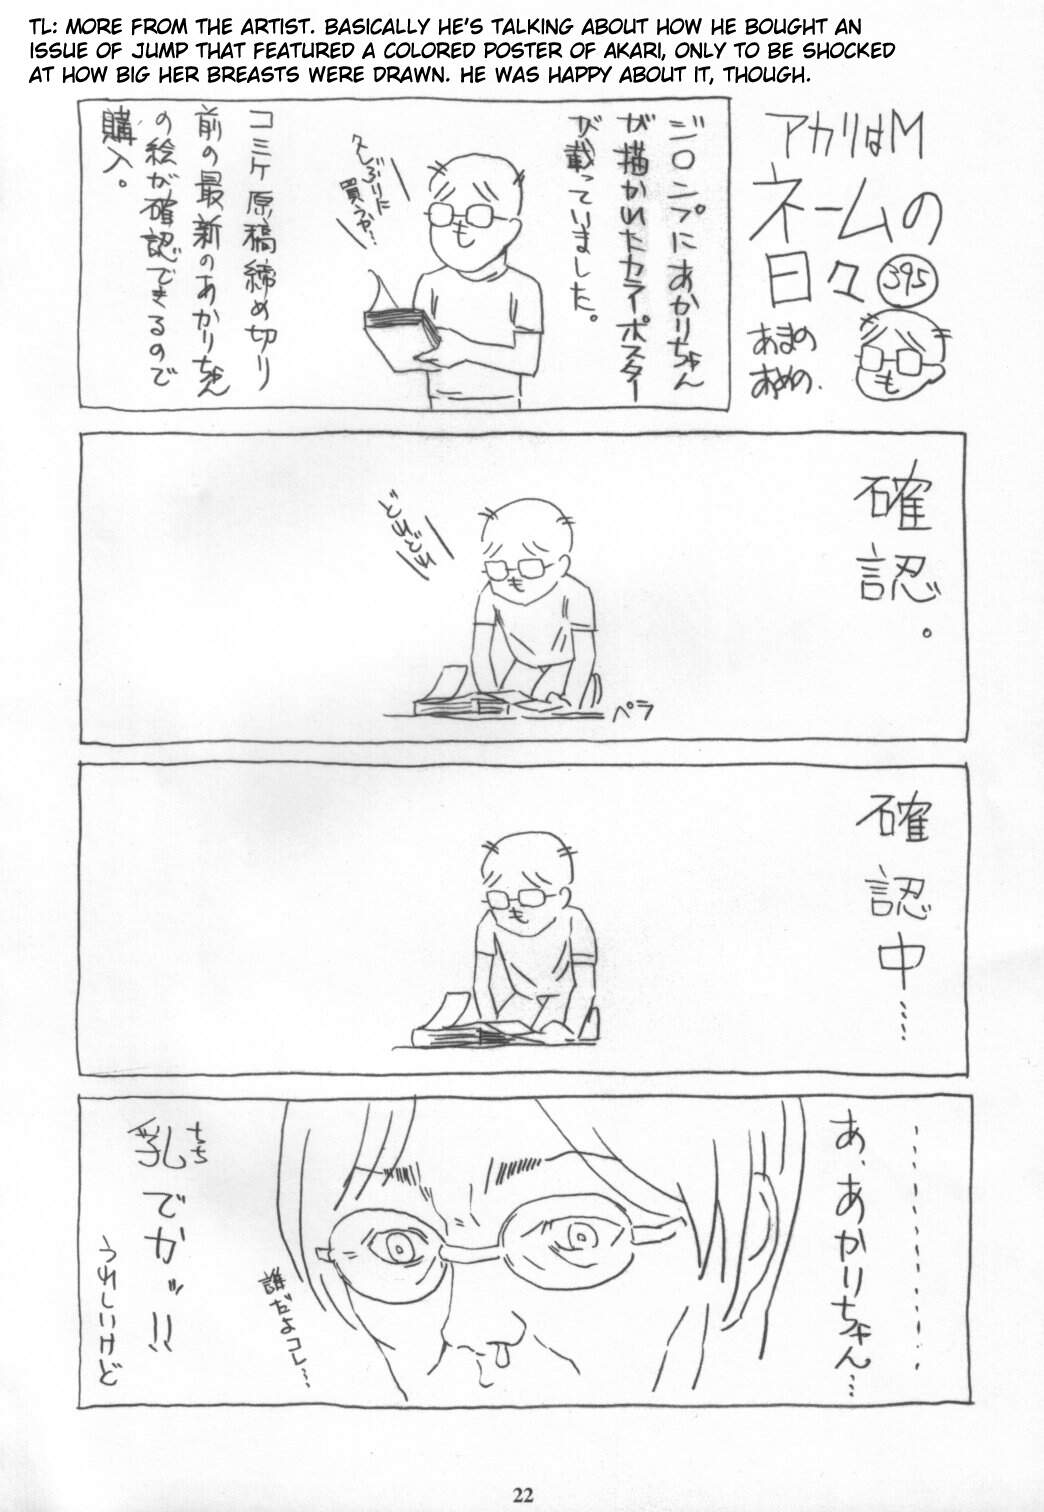 TL: MORE FROM THE ARTIST. BASICALLY HE'S TALKING ABOUT HOW HE BOUGHT AN
ISSUE OF JUMP THAT FEATURED A COLORED POSTER OF AKARI, ONLY TO BE SHOCKED
AT HOW BIG HER BREASTS WERE DRAWN. HE WAS HAPPY ABOUT IT, THOUGH.
アカリはM
ネームの
日々
395
あまの
あめの.
ジロンプにあかりちゃん
が描かいたカライポスター
が載っていました。
久しぶりに
買うか…
コミケ原稿締め切り
前の最新のあかりちゃん
の絵が確認できるので
購入。
確認。
どれどれ
ペラ
確認中……
………………
あ、あかりちゃん…
誰だよコレ…
乳でかッ!!
ちち
うれしいけど
22